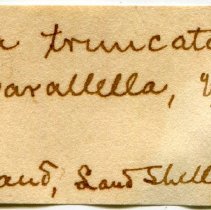 a truncata
parallella,
Land Shell